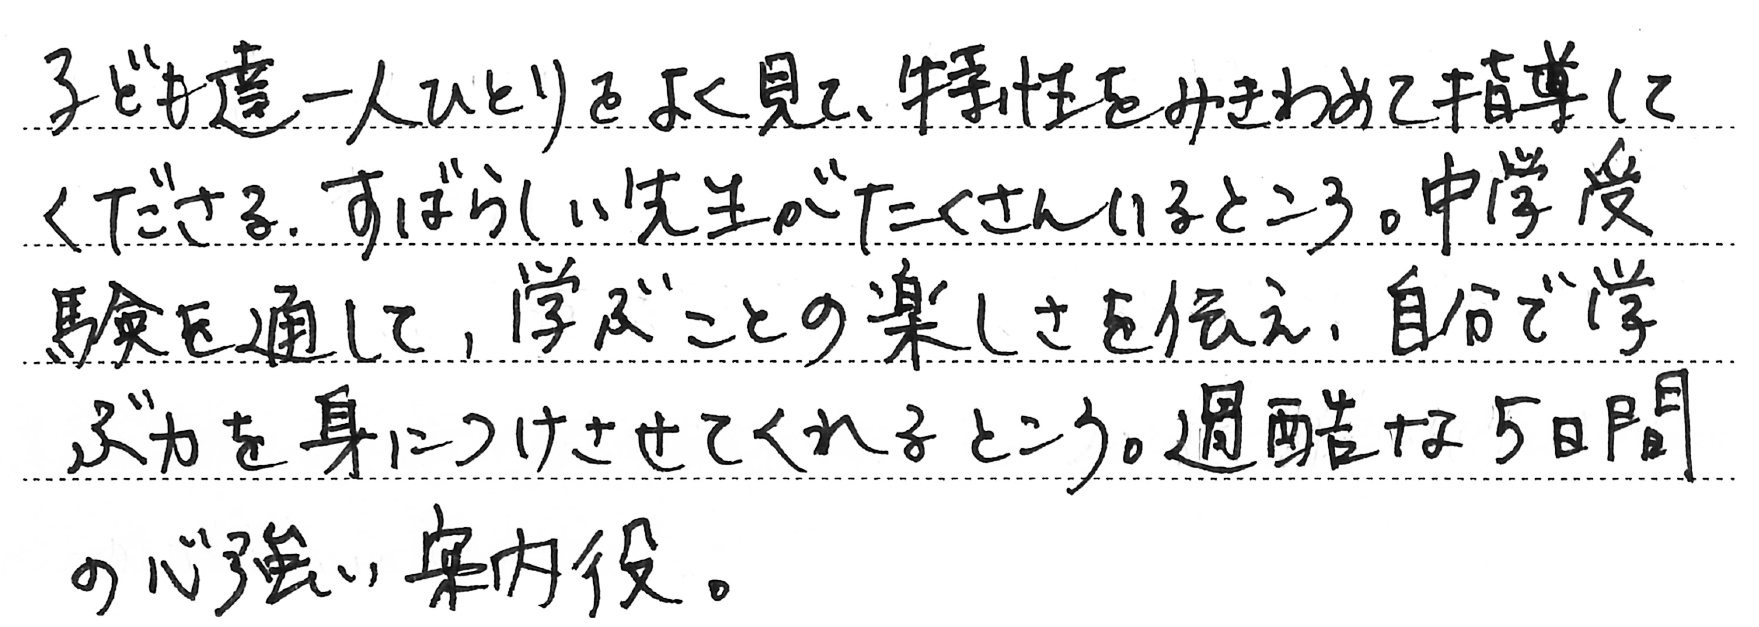 子ども達一人ひとりをよく見て、特性をみきわめて指導して
くださる、すばらしい先生がたくさんいるところ。中学受
験を通して、学ぶことの楽しさを伝え、自分で学
ぶ力を身につけさせてくれるところ。過酷な5日間
の心強い案内役。